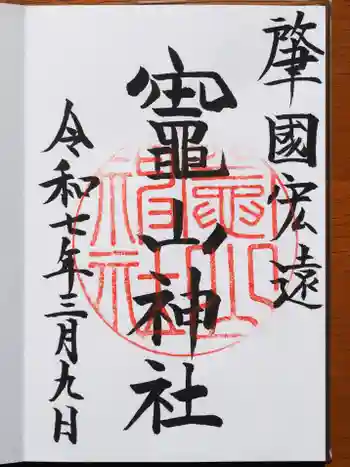 肇國宏遠
竈山神社
令和七年三月九日